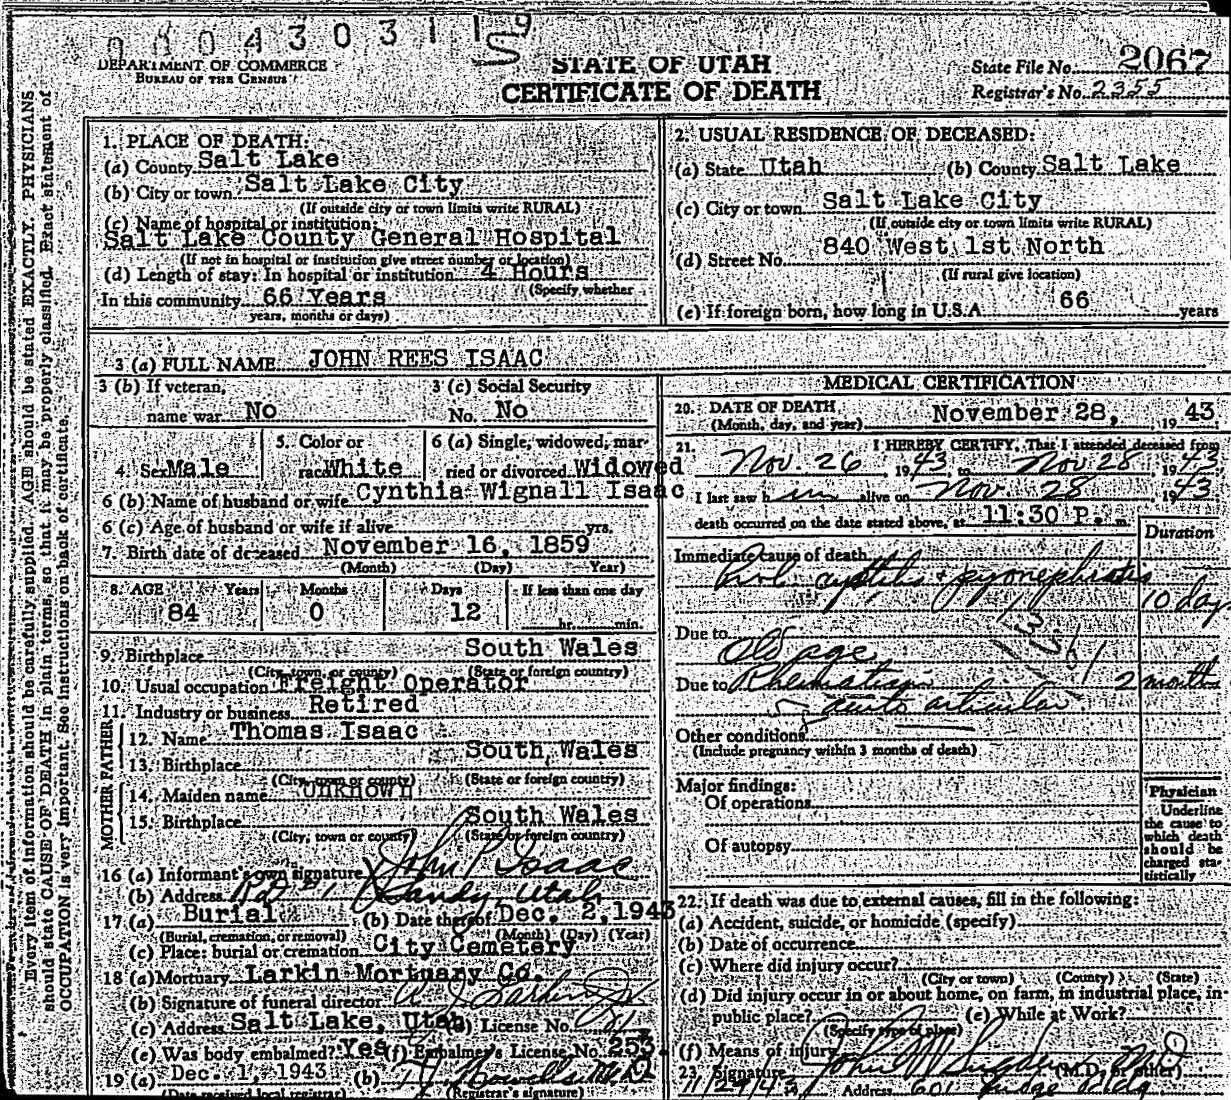 0404303119
S
DEPARTMENT OF COMMERCE
BUREAU OF THE CENSUS
STATE OF UTAH
CERTIFICATE OF DEATH
State File No. 2067
Registrar's No. 2355
Every item of information should be carefully supplied. AGE should be stated EXACTLY. PHYSICIANS
should state CAUSE OF DEATH in plain terms, so that it may be properly classified. Exact statement of
OCCUPATION is very important. See instructions on back of certificate.
1. PLACE OF DEATH:
(a) County Salt Lake
(b) City or town Salt Lake City
(If outside city or town limits write RURAL)
(c) Name of hospital or institution:
Salt Lake County General Hospital
(If not in hospital or institution give street number or location)
(d) Length of stay: In hospital or institution 4 Hours
(Specify whether
In this community 66 Years
years, months or days)
2. USUAL RESIDENCE OF DECEASED:
(a) State Utah (b) County Salt Lake
(c) City or town Salt Lake City
(If outside city or town limits write RURAL)
(d) Street No. 840 West 1st North
(If rural give location)
(e) If foreign born, how long in U.S.A. 66 years
3 (a) FULL NAME JOHN REES ISAAC
3 (b) If veteran,
name war No
3 (c) Social Security
No. No
4. Sex Male
5. Color or
race White
6 (a) Single, widowed, mar-
ried or divorced Widowed
6 (b) Name of husband or wife Cynthia Wignall Isaac
6 (c) Age of husband or wife if alive yrs.
7. Birth date of deceased November 16, 1859
(Month) (Day) Year)
8. AGE Years Months Days If less than one day
84 0 12 hr. min.
9. Birthplace South Wales
(City, town, or county) (State or foreign country)
10. Usual occupation Freight Operator
11. Industry or business Retired
FATHER
12. Name Thomas Isaac
13. Birthplace South Wales
(City, town or county) (State or foreign country)
MOTHER
14. Maiden name Unknown
15. Birthplace South Wales
(City, town or county) (State or foreign country)
16 (a) Informant's own signature John P Isaac
(b) Address Rd #1 Sandy, Utah
17 (a) Burial (b) Date thereof Dec. 2, 1943
(Burial, cremation, or removal) (Month) (Day) (Year)
(c) Place: burial or cremation City Cemetery
18 (a) Mortuary Larkin Mortuary Co.
(b) Signature of funeral director
(c) Address Salt Lake, Utah License No.
(e) Was body embalmed? Yes (f) Embalmer's License No. 253
19 (a) Dec. 1, 1943 (b)
(Date received local registrar) (Registrar's signature)
MEDICAL CERTIFICATION
20. DATE OF DEATH November 28, 1943
(Month, day, and year)
21. I HEREBY CERTIFY, That I attended deceased from
Nov. 26 1943 to Nov 28 1943
I last saw him alive on Nov. 28 1943
death occurred on the date stated above, at 11:30 P. m.
Duration
Immediate cause of death
Prob. cystitis + pyonephrosis 10 day
Due to
Old age
Due to Rhematism 2 month
acute articular
Other conditions
(Include pregnancy within 3 months of death)
Major findings:
Of operations
Of autopsy
Physician
Underline
the cause to
which death
should be
charged sta-
tistically
22. If death was due to external causes, fill in the following:
(a) Accident, suicide, or homicide (specify)
(b) Date of occurrence
(c) Where did injury occur?
(City or town) (County) (State)
(d) Did injury occur in or about home, on farm, in industrial place, in
public place? (e) While at Work?
(Specify type of place)
(f) Means of injury
23. Signature John W Sugden M.D. (M.D. or other)
11/29/43 Address 601 Judge Bldg